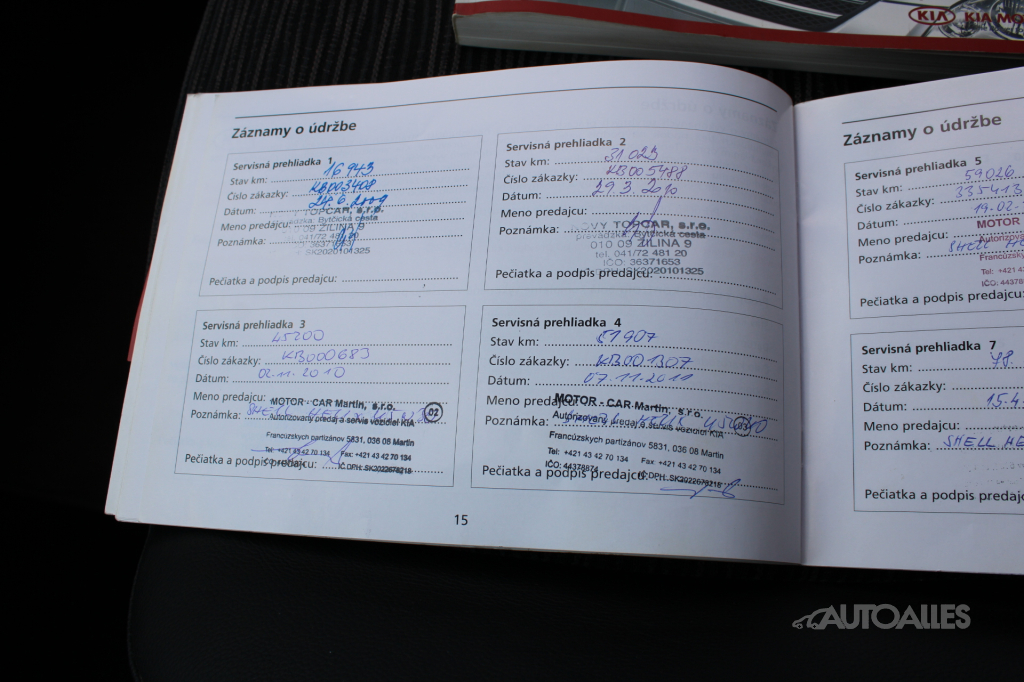 KIA KIA MO
Záznamy o údržbe
Servisná prehliadka 1
Stav km: 16 943
Číslo zákazky: KB003408
Dátum: 24.6.2009
Meno predajcu: TOPCAR, s.r.o.
Bytčická cesta
Poznámka: 010 09 ŽILINA 9
041/72 481 20
SK2020101325
Pečiatka a podpis predajcu:
Servisná prehliadka 2
Stav km: 31 023
Číslo zákazky: KB005488
Dátum: 29.3.2010
Meno predajcu:
Poznámka: TOPCAR, s.r.o.
Bytčická cesta
010 09 ŽILINA 9
tel. 041/72 481 20
IČO: 36371653
Pečiatka a podpis predajcu: SK2020101325
Servisná prehliadka 3
Stav km: 45200
Číslo zákazky: KB000683
Dátum: 02.11.2010
Meno predajcu: MOTOR - CAR Martin, s.r.o.
Poznámka: SHELL HELIX 02
Autorizovaný predaj a servis vozidiel KIA
Francúzskych partizánov 5831, 036 08 Martin
Tel: +421 43 42 70 134 Fax: +421 43 42 70 134
Pečiatka a podpis predajcu: IČ DPH: SK2022678218
Servisná prehliadka 4
Stav km: 51907
Číslo zákazky: KB001307
Dátum: 07.11.2011
Meno predajcu: MOTOR - CAR Martin, s.r.o.
Poznámka: Autorizovaný predaj a servis vozidiel KIA 03
Francúzskych partizánov 5831, 036 08 Martin
Tel: +421 43 42 70 134 Fax: +421 43 42 70 134
IČO: 44378874 IČ DPH: SK2022678218
Pečiatka a podpis predajcu:
15
Záznamy o údržbe
Servisná prehliadka 5
Stav km: 59026
Číslo zákazky: 335413
Dátum: 19.02.
Meno predajcu: MOTOR
Autorizova
Poznámka: SHELL HE
Francúzsk
Tel: +421
IČO: 44378
Pečiatka a podpis predajcu:
Servisná prehliadka 7
Stav km: 78
Číslo zákazky:
Dátum: 15.4.
Meno predajcu:
Poznámka: SHELL HE
Pečiatka a podpis predajc
AUTOALLES